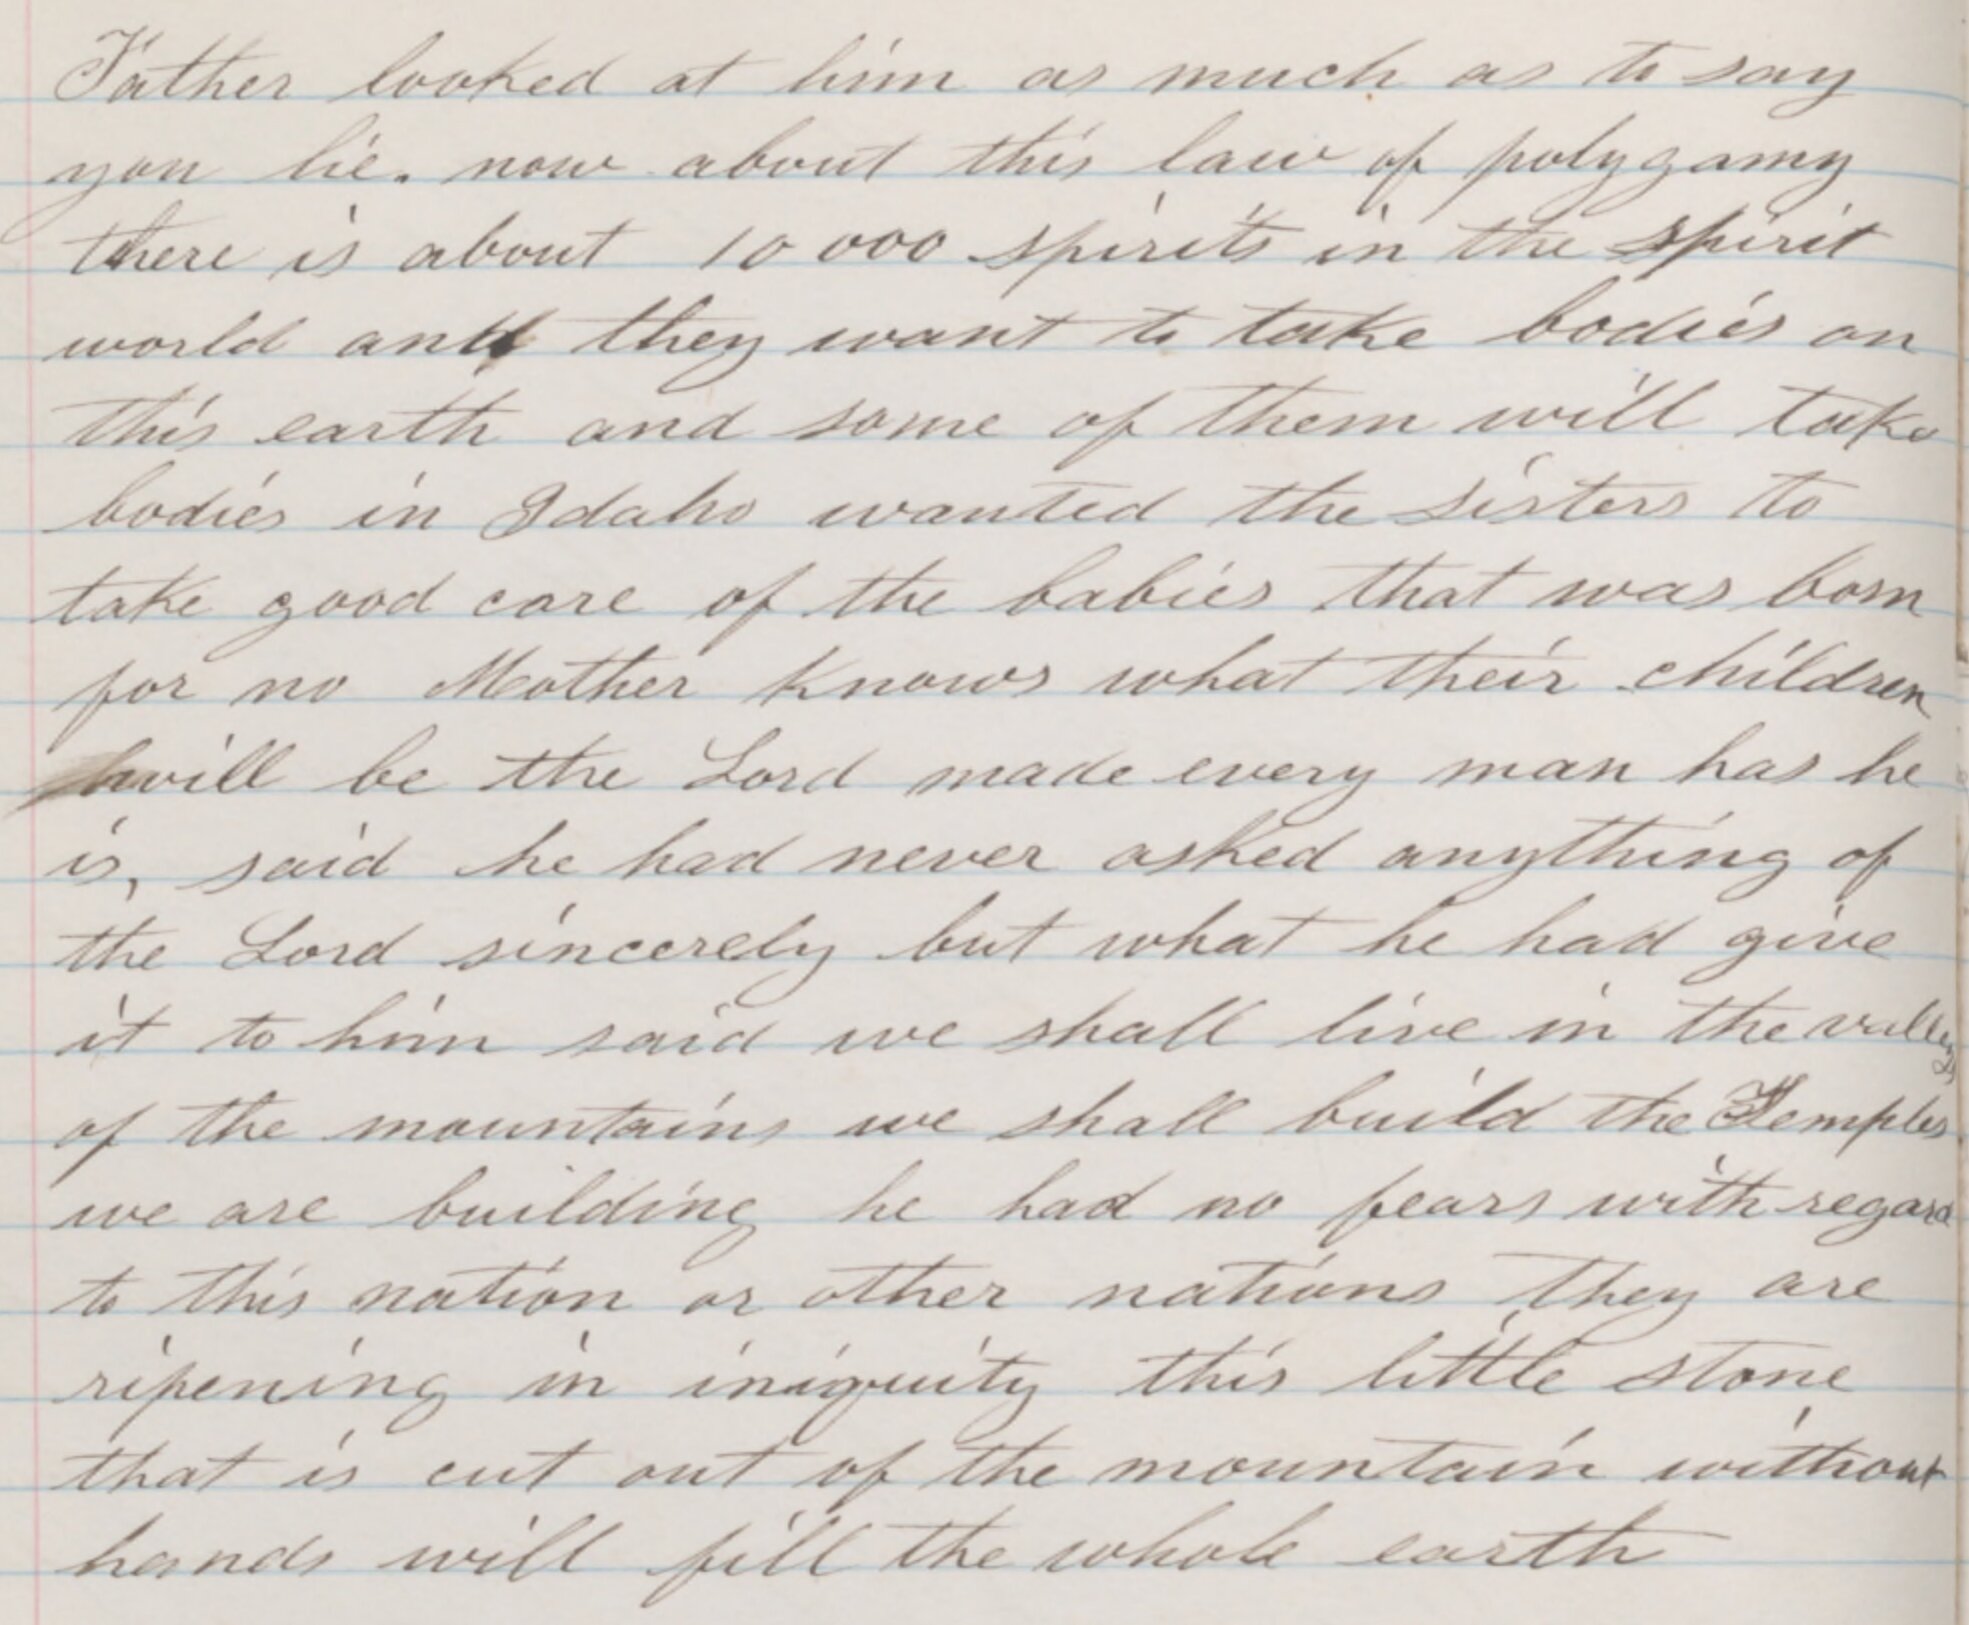 Father looked at him as much as to say
you lie. now about this law of polygamy
there is about 10 000 spirits in the spirit
world and they want to take bodies on
this earth and some of them will take
bodies in Idaho wanted the sisters to
take good care of the babies that was born
for no Mother knows what their children
will be the Lord made every man has he
is, said he had never asked anything of
the Lord sincerely but what he had give
it to him said we shall live in the valleys
of the mountains we shall build the Temples
we are building he had no fears with regard
to this nation or other nations they are
ripening in iniquity this little stone
that is cut out of the mountain without
hands will fill the whole earth